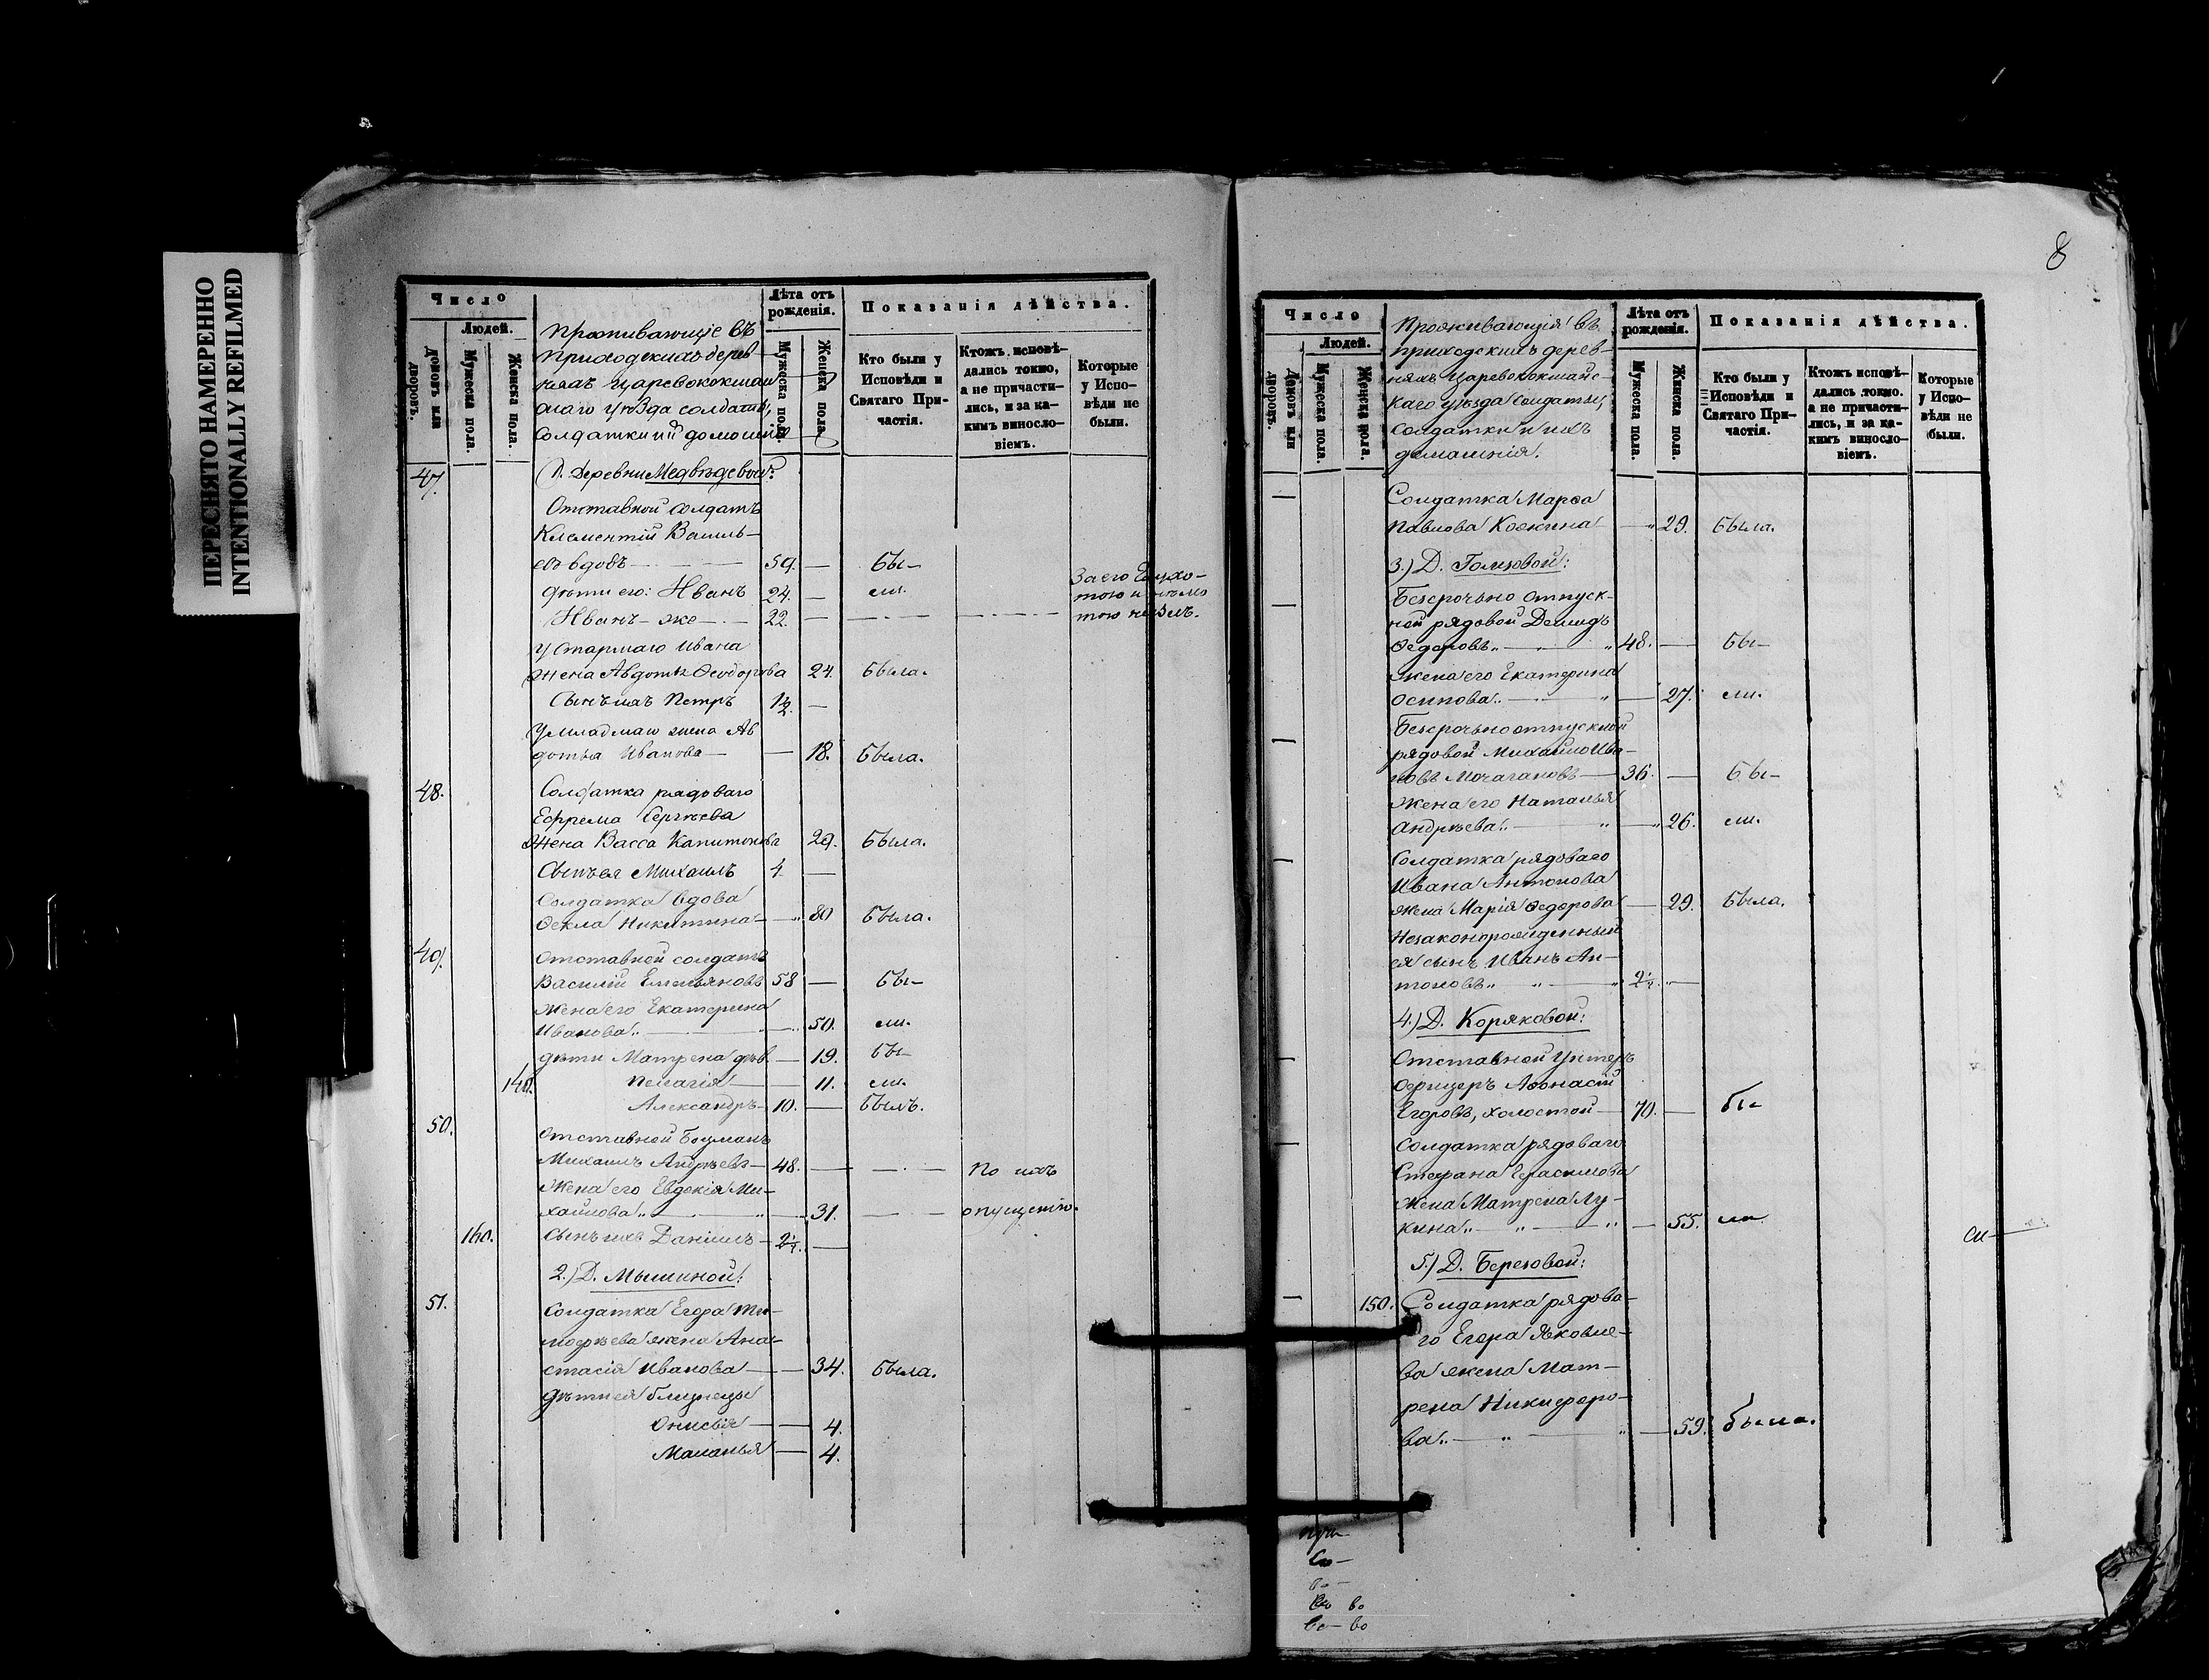 ПЕРЕСНЯТО НАМЕРЕННО
INTENTIONALLY REFILMED
Число
Людей.
Домовъ или дворовъ.
Мужеска пола.
Женска пола.
Проживающіе въ
приходскихъ дерев-
няхъ Царевококшай
скаго уѣзда солдаты,
солдатки и ихъ домашніе
Лѣта отъ рожденія.
Мужеска пола.
Женска пола.
Показанія дѣйства.
Кто были у Исповѣди и Святаго При-частія.
Ктожъ исповѣ-дались токмо, а не причасти-лись, и за ка-кимъ винослo-віемъ.
Которые у Испо-вѣди не были.
47. 1. Деревни Медвѣдевой:
Отставной солдатъ
Клементій Василь-
евъ вдовъ 59. — бы-
дѣти его: Иванъ 24. — ли.
Иванъ-же 22. —
За его
У старшаго Ивана
жена Авдотья Ѳеодорова 24. Была.
Сынъ ихъ Петръ 1/2. —
У младшаго жена Ав
дотья Иванова — 18. Была.
48. Солдатка рядоваго
Ефрема Сергѣева
жена Васса Капитонова 29. Была.
Сынъ ея Михаилъ 4 —
Солдатка вдова
Ѳекла Никитина — 80 Была.
49. Отставной солдатъ
Василій Емельяновъ 58 — бы-
Жена его Екатерина
Иванова — 50. ли.
дѣти Матрена дѣв. — 19. бы-
140. Пелагія — 11. ли.
Александръ 10. — былъ.
50. Отставной Боцманъ
Михаилъ Андреевъ — 48. — По ихъ
Жена его Евдокія Ми-
хайлова — 31. — опущенію.
160. Сынъ ихъ Даніилъ — 2 1/2. —
2.) Д. Мышиной:
51. Солдатка Егора Ти-
моѳѣева жена Ана-
стасія Иванова — 34. Была.
Дѣти ея близнецы
Онисія — 4.
Маланья — 4.
8
Число
Людей.
Домовъ или дворовъ.
Мужеска пола.
Женска пола.
Проживающія въ
приходскихъ дерев-
няхъ Царевококшайс-
каго уѣзда солдаты,
солдатки и ихъ
домашнія.
Лѣта отъ рожденія.
Мужеска пола.
Женска пола.
Показанія дѣйства.
Кто были у Исповѣди и Святаго При-частія.
Ктожъ исповѣ-дались токмо. а не причасти-лись, и за ка-кимъ винослo-віемъ.
Которые у Испо-вѣди не были.
— Солдатка Марѳа
Павлова — 29. Была.
3.) Д. Гомзовой:
— Безсрочно отпуск-
ной рядовой Демидъ
Ѳедоровъ 48. — бы-
жена его Екатерина
Осипова — 27. ли.
— Безсрочноотпускной
рядовой Михайло Ива-
новъ Мочагановъ — 36. — бы-
Жена его Наталья
Андреева — 26. ли.
— Солдатка рядоваго
Ивана Антонова
жена Марія Ѳедорова — 29. Была.
Незаконнорожденный
ея сынъ Иванъ Ан-
тоновъ 2 1/2 —
4.) Д. Коряковой:
— Отставной Унтеръ
Офицеръ Аѳонасій
Егоровъ, холостой — 70. — бы-
— Солдатка рядоваго
Стефана Герасимова
жена Матрена Лу-
кина — 55. ли
5.) Д. Березовой:
— 150. Солдатка рядова-
го Егора Яковле-
ва жена Мат-
рена Никифоро-
ва — 59. была.